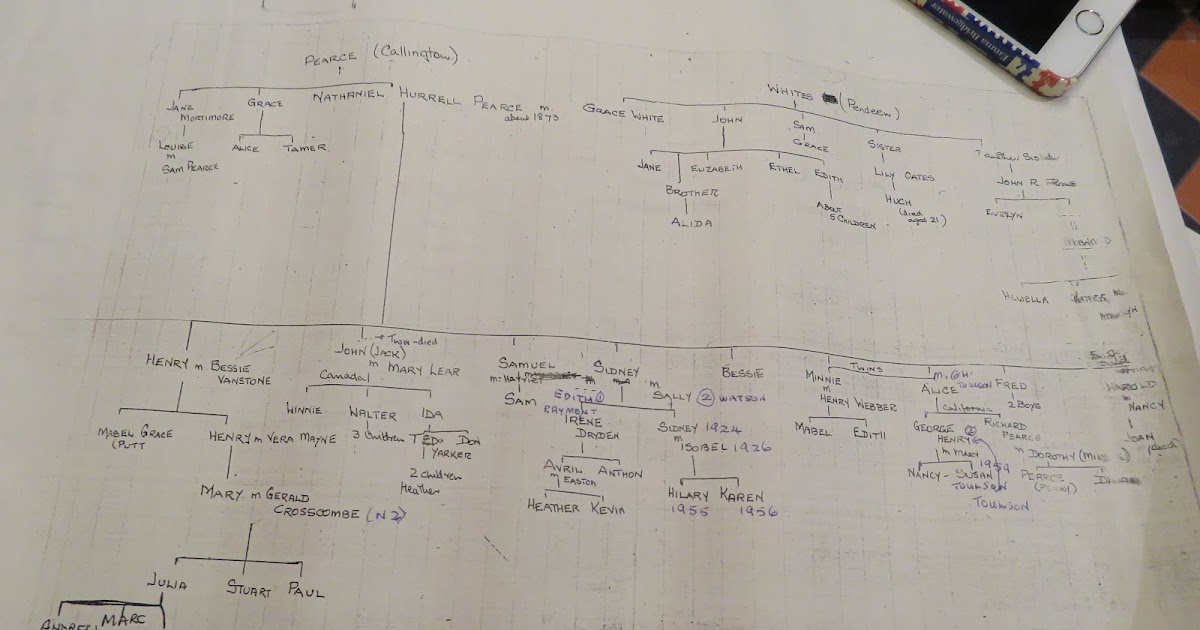 PEARCE (Callington)
JANE MORTIMORE
GRACE
NATHANIEL
HURRELL PEARCE m. about 1873
LOUISE m SAM PEARCE
ALICE TAMER
WHITES (Pendeen)
GRACE WHITE
JOHN
SAM
GRACE
SISTER
? another Sister
JANE
ELIZABETH
ETHEL
EDITH
BROTHER
ALIDA
ABOUT 5 CHILDREN
LILY OATES
HUGH (died aged 21)
JOHN R.
EVELYN
HENRY m BESSIE VANSTONE
→ Twin-died
JOHN (JACK) m MARY LEAR
Canada
WINNIE
WALTER
IDA
3 Children
TED
DON
YARKER
2 children
Heather
MABEL GRACE (PUTT
HENRY m VERA MAYNE
MARY m GERALD CROSSCOMBE (NZ)
JULIA STUART PAUL
MARC
SAMUEL
SAM
SIDNEY
m
EDITH ① RAYMENT
SALLY ② WATSON
IRENE DRYDEN
SIDNEY 1924
m
ISOBEL 1926
AVRIL m EASTON
ANTHON
HEATHER KEVIN
HILARY 1955
KAREN 1956
BESSIE
TWINS
MINNIE m HENRY WEBBER
MABEL EDITH
m. G.H. TOWLSON
ALICE
FRED
2 BOYS
California
GEORGE ② HENRY
m MARY
RICHARD PEARCE
m DOROTHY
NANCY - SUSAN 1959
TOWLSON
TOWLSON
PEARCE
HAROLD
m
NANCY
JOAN